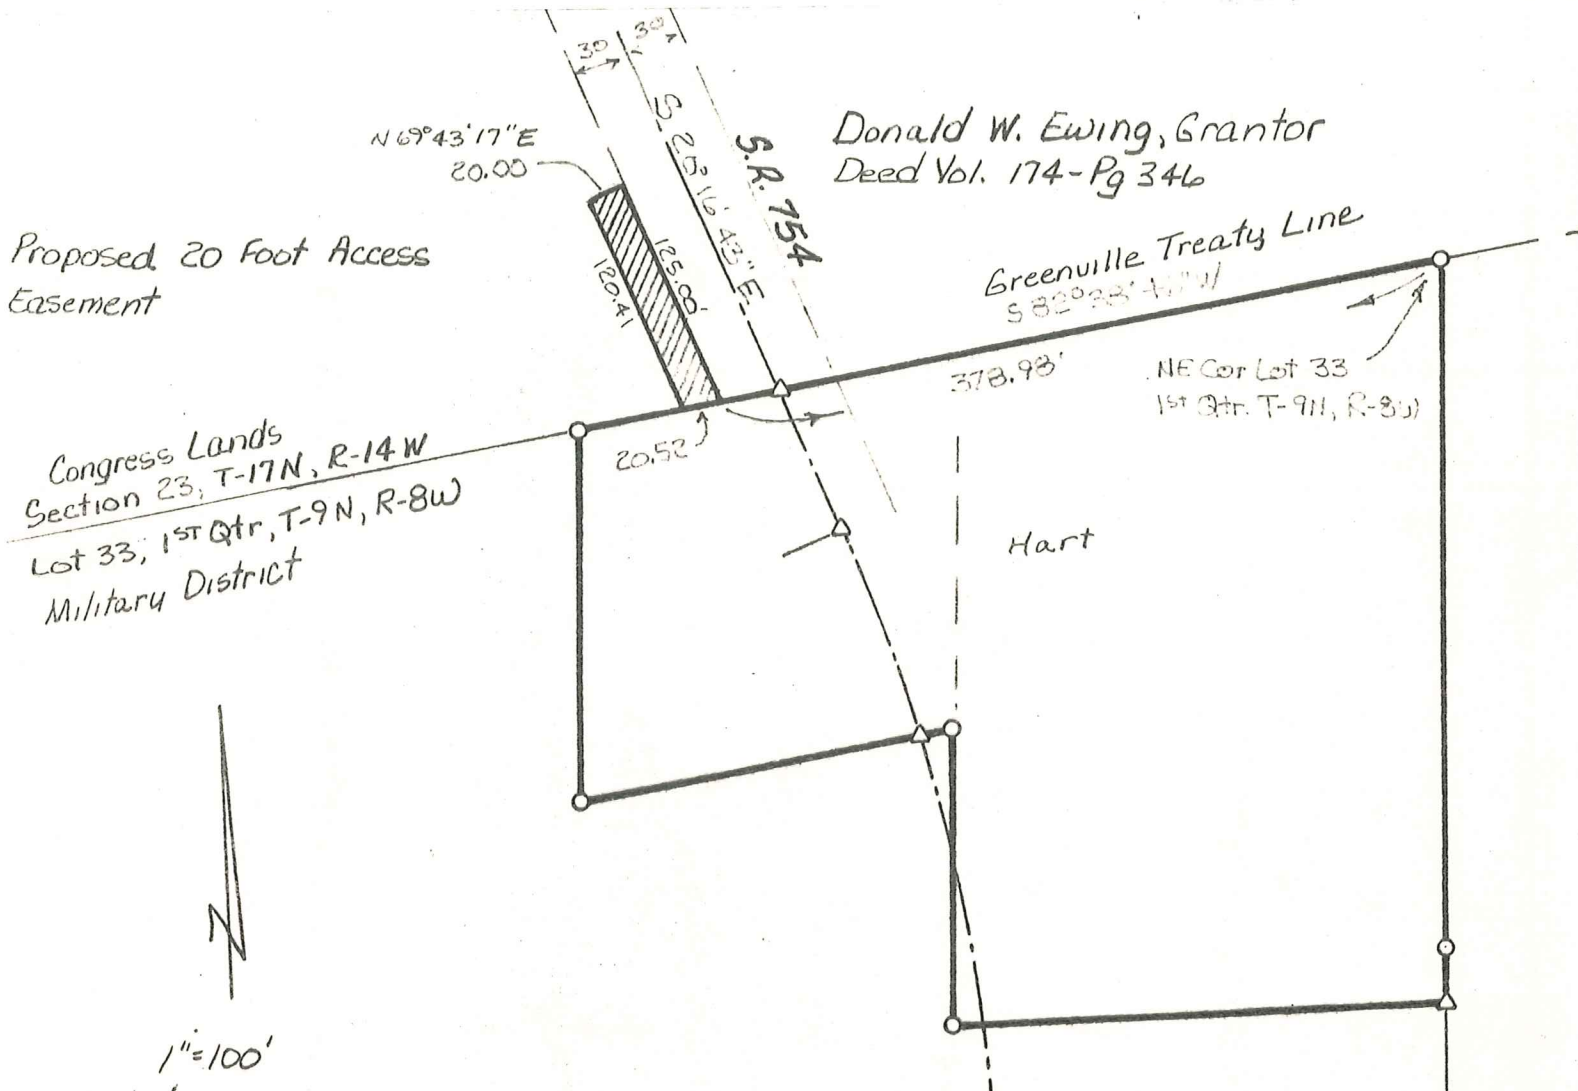 30
30
N 69°43'17"E
20.00
S. 20°16'43"E.
S.R. 754
Donald W. Ewing, Grantor
Deed Vol. 174-Pg 346
Proposed 20 Foot Access
Easement
125.00'
120.41
Greenville Treaty Line
S 82°38'
378.98'
NE Cor Lot 33
1st Qtr. T-9N, R-8W
20.52
Congress Lands
Section 23, T-17N, R-14W
Lot 33, 1ST Qtr, T-9N, R-8W
Military District
Hart
N
1"=100'